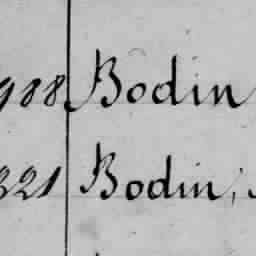 988 Bodin
321 Bodin,